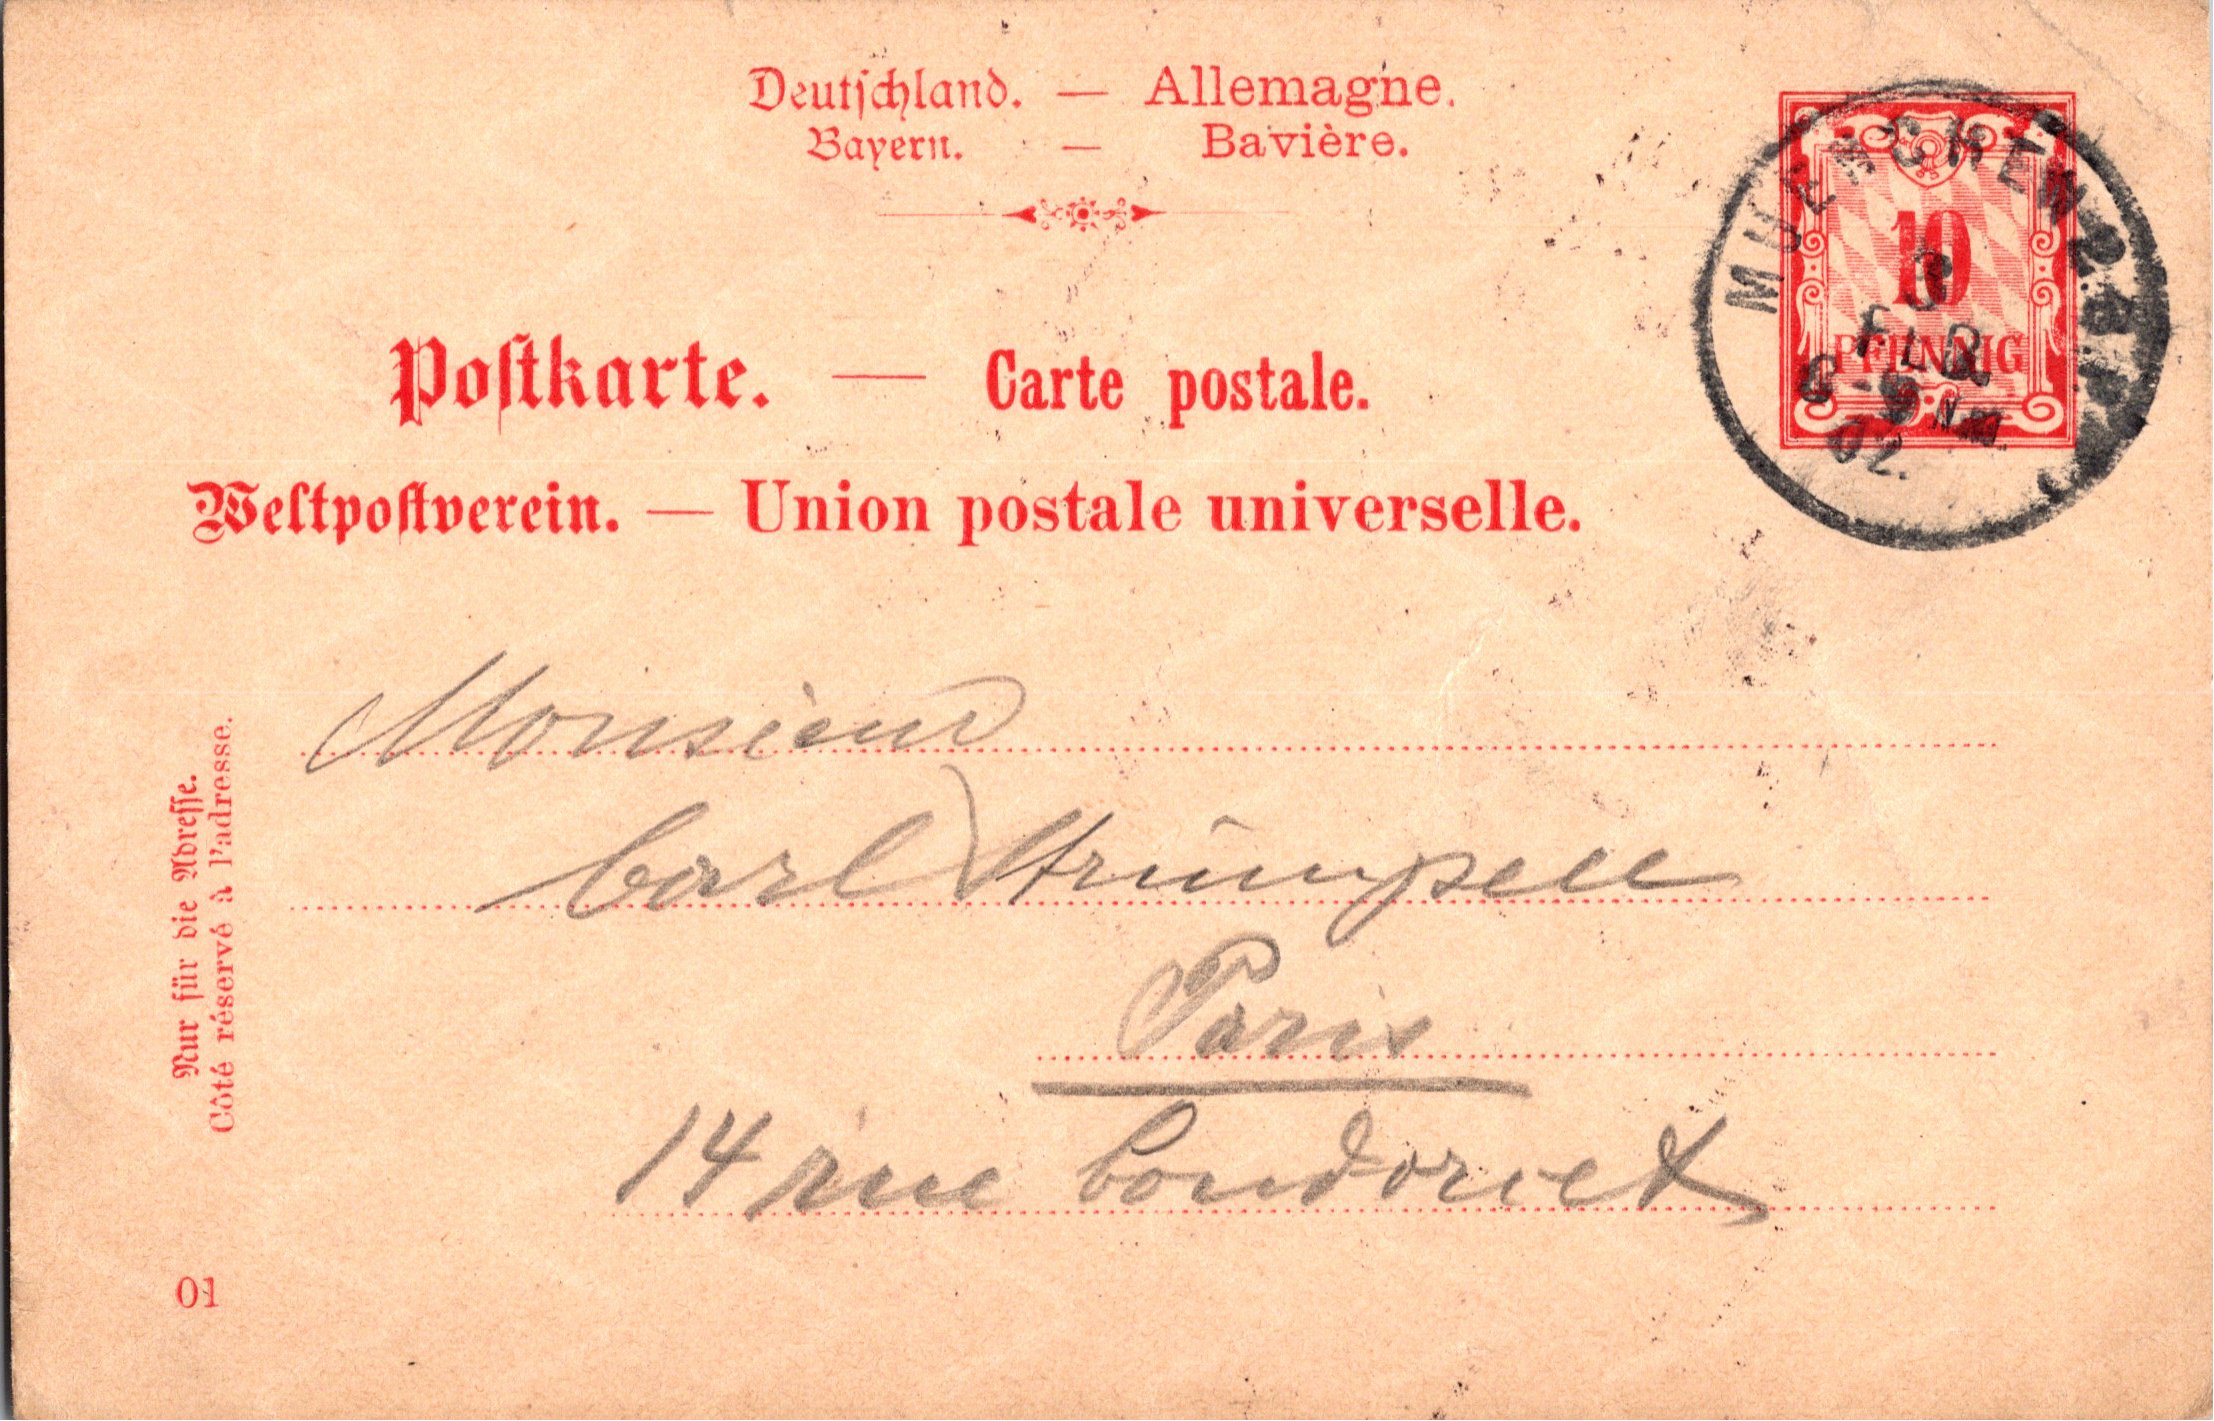 Deutschland. — Allemagne.
Bayern. — Bavière.
Postkarte. — Carte postale.
Weltpostverein. — Union postale universelle.
10
PFENNIG
MUENCHEN
3
FEB
6-9 NM.
02.
Monsieur
Carl Strümpell
Paris
14 rue Condorcet
Nur für die Adresse.
Côté réservé à l'adresse.
01